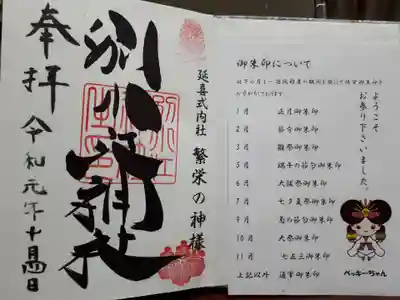 奉拝
別小江神社
延喜式内社 繁栄の神様
御朱印について
ようこそ
お参り下さいました。
1月 正月御朱印
2月 節分御朱印
3月 雛祭御朱印
5月 端午の節句御朱印
6月 大祓祭御朱印
7月 七夕夏祭御朱印
9月 菊の節句御朱印
10月 大祭御朱印
11月 七五三御朱印
上記以外 通常御朱印
ベッキーちゃん